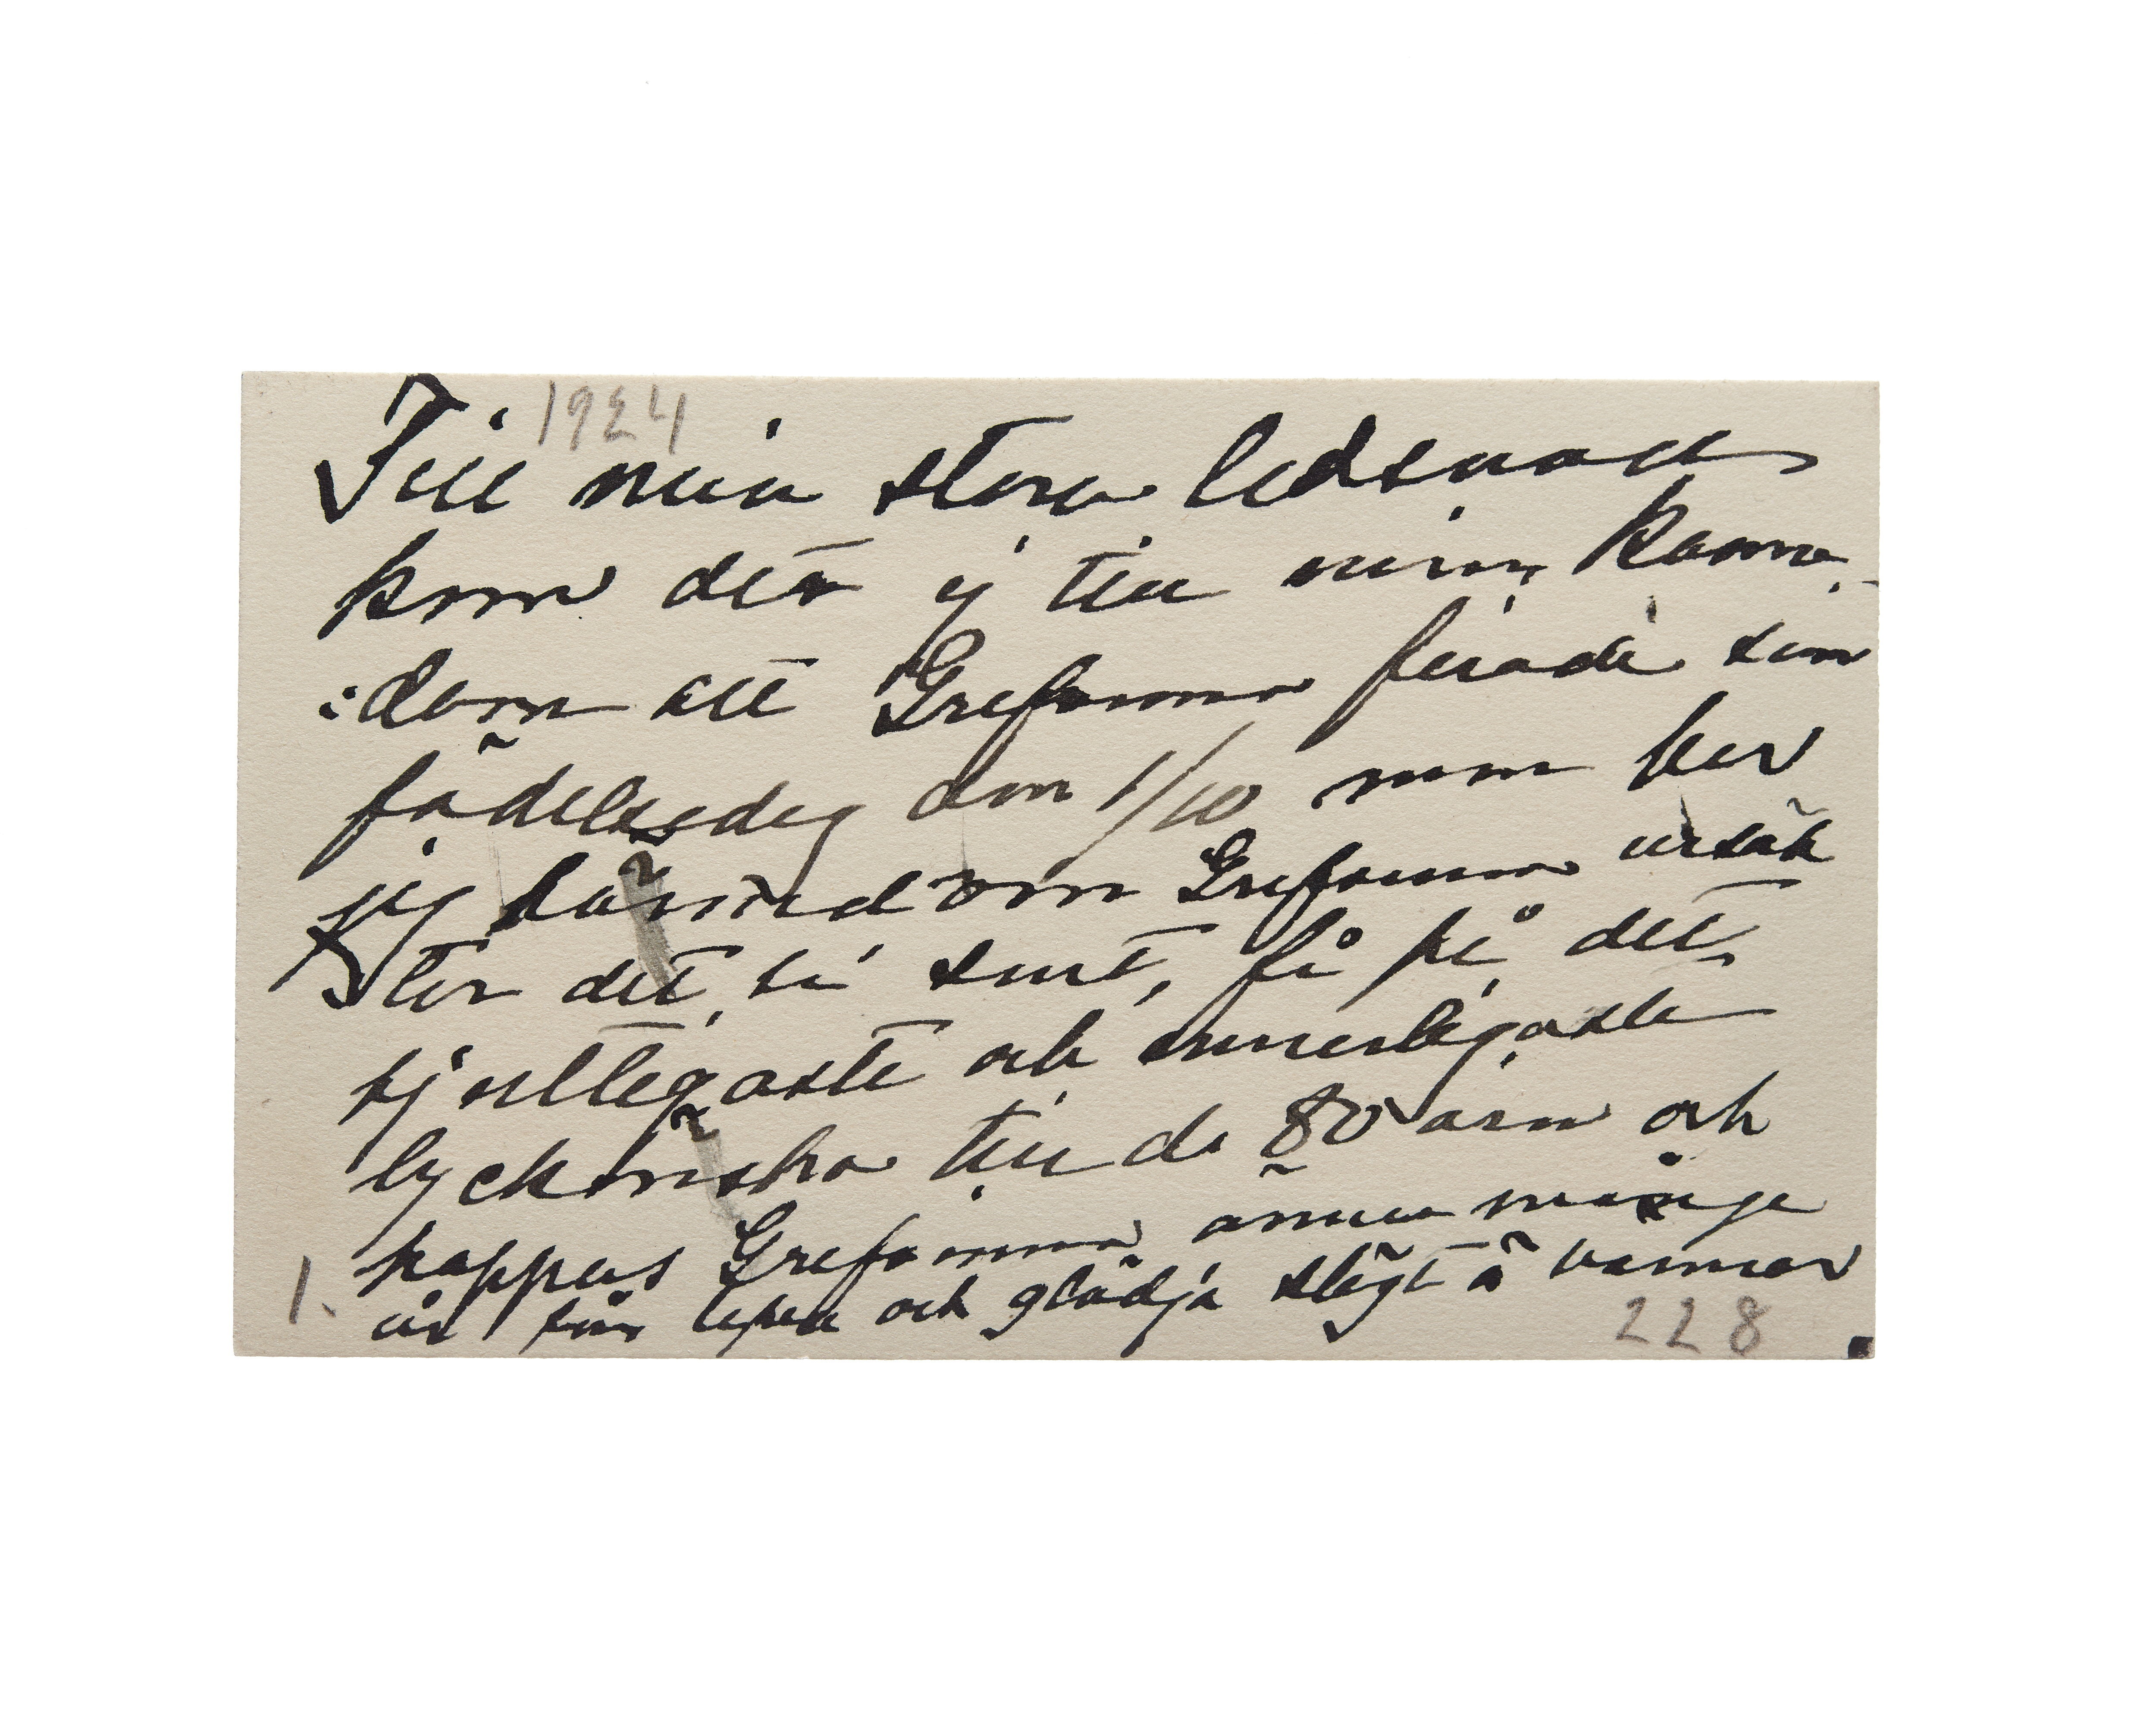 1924
Till min stora ledsnad
kom det ej till min känne-
:dom att Grefvinna firade sin
födelsedag den 1/10 men ber
jag härmed om Grefvinna ursäk
tar det så sent, få på det
hjertligaste och innerligaste
lyckönska till de 80 åren och
hoppas Grefvinna ännu många
år får lefva och glädja slägt å vänner
1.
228